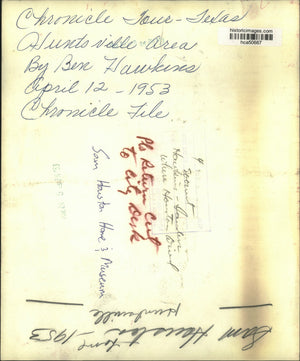 historicimages.com
hca50667
Chronicle Tour - Texas
Huntsville Area
By Ben Hawkins
April 12 - 1953
Chronicle File.
Pls Return Cut
To City Desk
Sam Houston Home & Museum
Where Houston
Sam Houston Home 1953
Huntsville